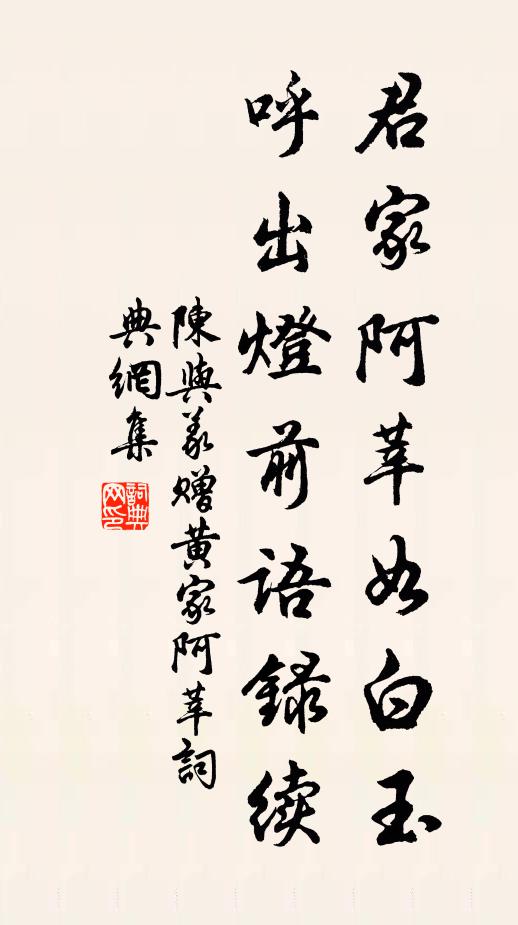 君家阿莘如白玉
呼出燈前語録续
陳與義贈黄家阿莘詞
典網集
詞典网印